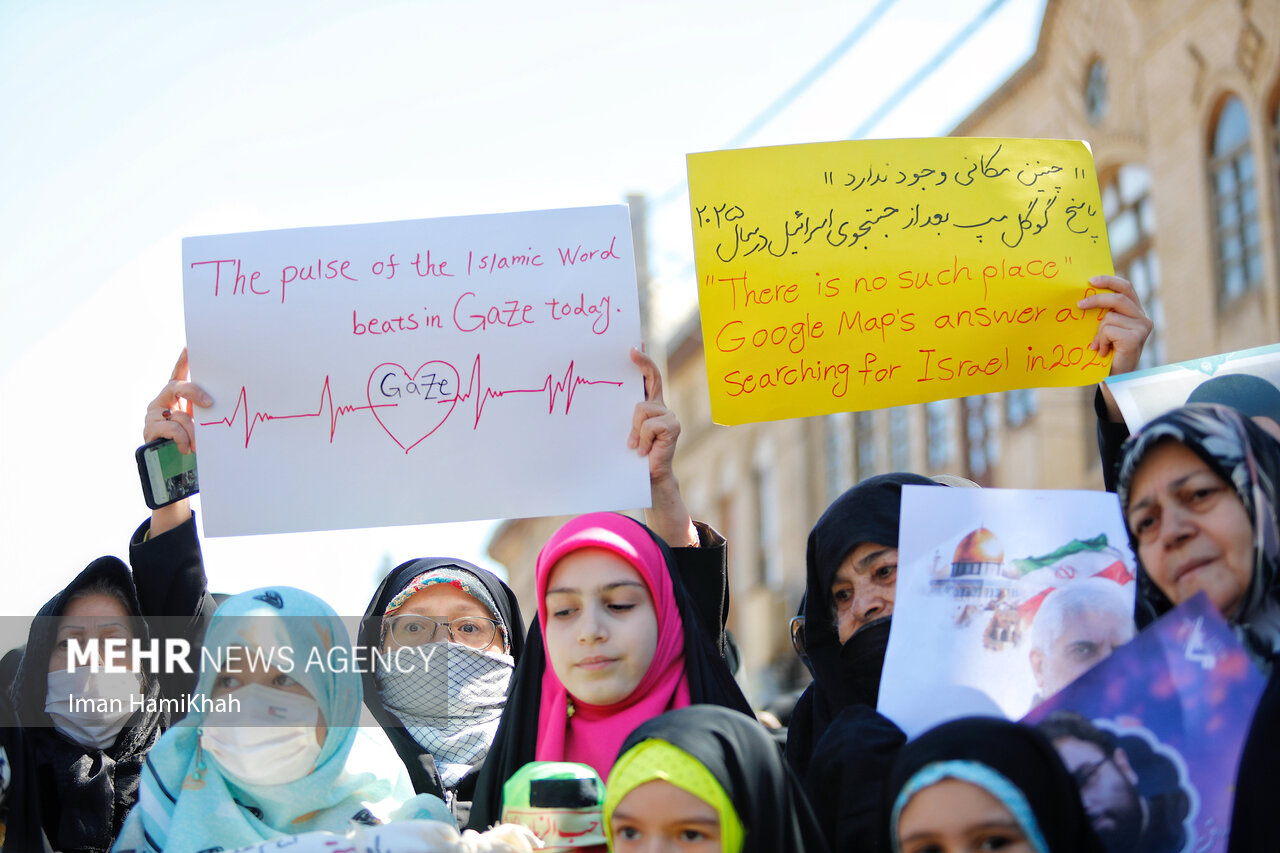 The pulse of the Islamic Word
beats in Gaze today.
Gaze
"چنین مکانی وجود ندارد"
پاسخ گوگل مپ بعد از جستجوی اسرائیل در سال ۲۰۲۵
"There is no such place"
Google Map's answer
searching for Israel in 202
MEHR NEWS AGENCY
Iman HamiKhah